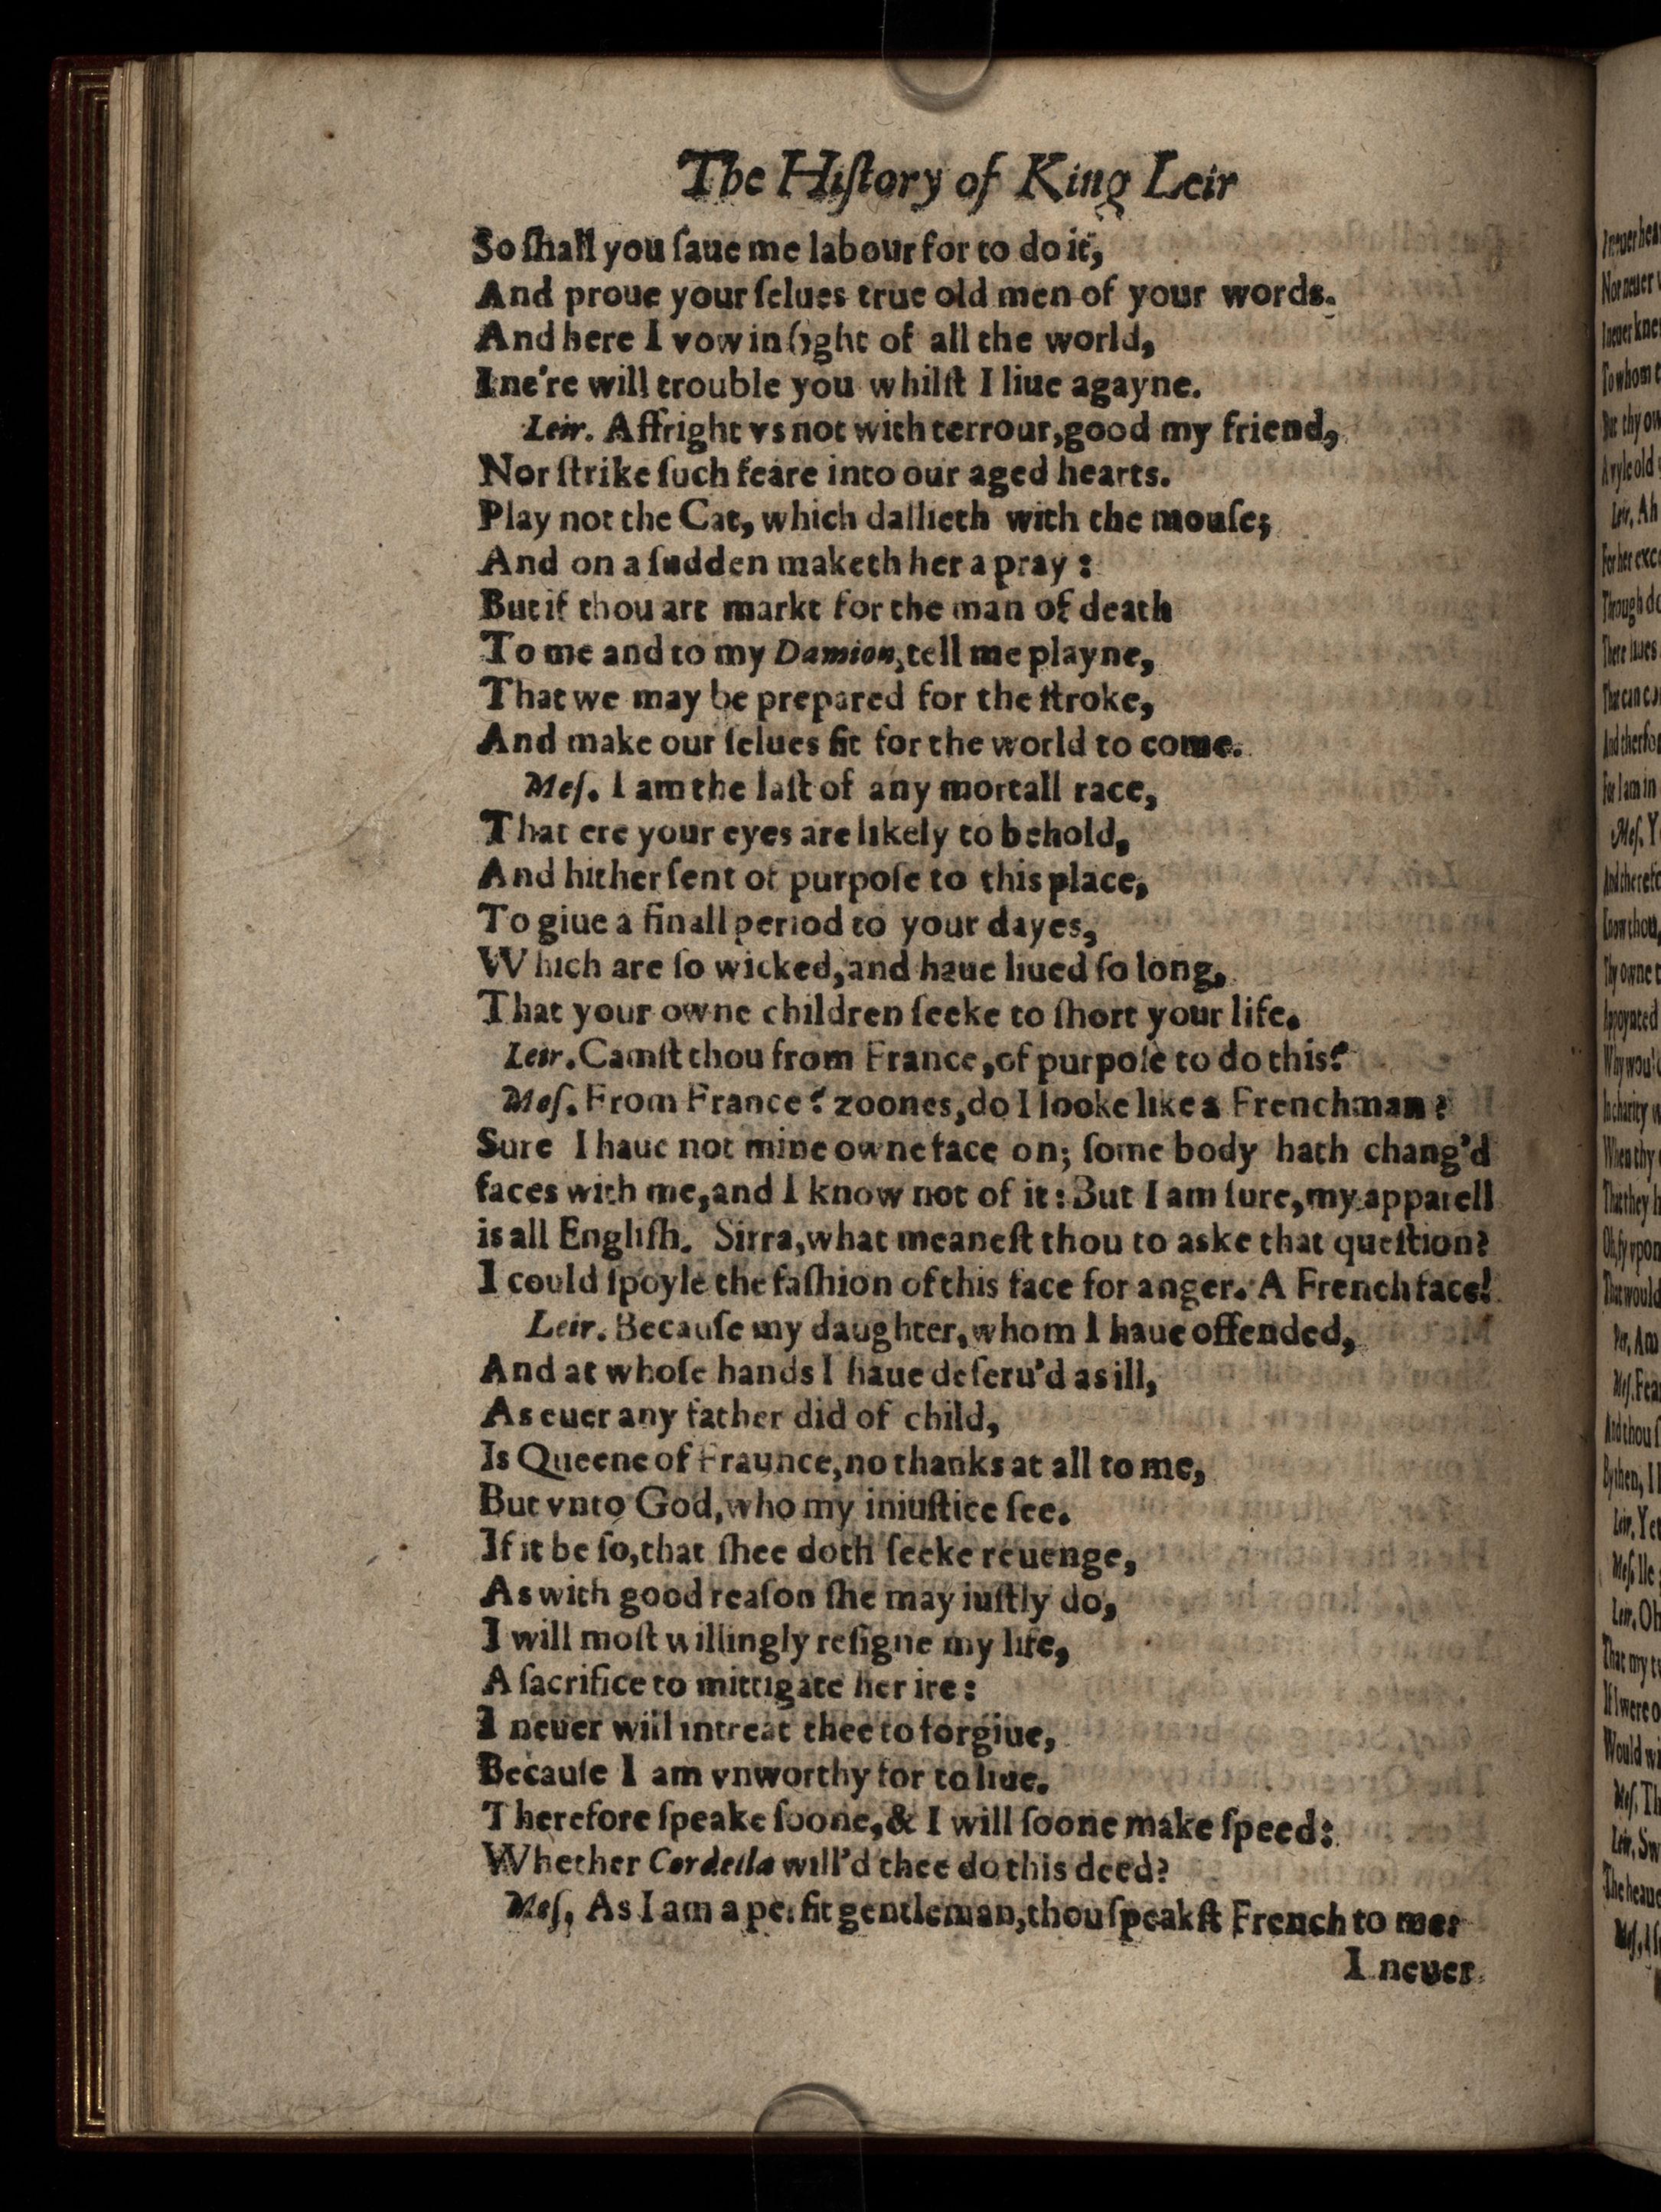 The Hiſtory of King Leir
So ſhall you ſaue me labour for to do it,
And proue your ſelues true old men of your words.
And here I vow in ſight of all the world,
I ne're will trouble you whilſt I liue agayne.
Leir. Affright vs not with terrour, good my friend,
Nor ſtrike ſuch feare into our aged hearts.
Play not the Cat, which dallieth with the mouſe;
And on a ſudden maketh her a pray:
But if thou art markt for the man of death
To me and to my Damion, tell me playne,
That we may be prepared for the ſtroke,
And make our ſelues fit for the world to come.
Meſ. I am the laſt of any mortall race,
That ere your eyes are likely to behold,
And hither ſent of purpoſe to this place,
To giue a finall period to your dayes,
Which are ſo wicked, and haue liued ſo long,
That your owne children ſeeke to ſhort your life.
Leir. Camſt thou from France, of purpoſe to do this?
Meſ. From France? zoones, do I looke like a Frenchman?
Sure I haue not mine owne face on; ſome body hath chang'd
faces with me, and I know not of it: But I am ſure, my apparell
is all Engliſh. Sirra, what meaneſt thou to aske that queſtion?
I could ſpoyle the faſhion of this face for anger. A French face!
Leir. Becauſe my daughter, whom I haue offended,
And at whoſe hands I haue deſeru'd as ill,
As euer any father did of child,
Is Queene of Fraunce, no thanks at all to me,
But vnto God, who my iniuſtice ſee.
If it be ſo, that ſhee doth ſeeke reuenge,
As with good reaſon ſhe may iuſtly do,
I will moſt willingly reſigne my life,
A ſacrifice to mittigate her ire:
I neuer will intreat thee to forgiue,
Becauſe I am vnworthy for to liue.
Therefore ſpeake ſoone, & I will ſoone make ſpeed:
Whether Cordella will'd thee do this deed?
Meſ. As I am a perfit gentleman, thou ſpeakſt French to me:
I neuer